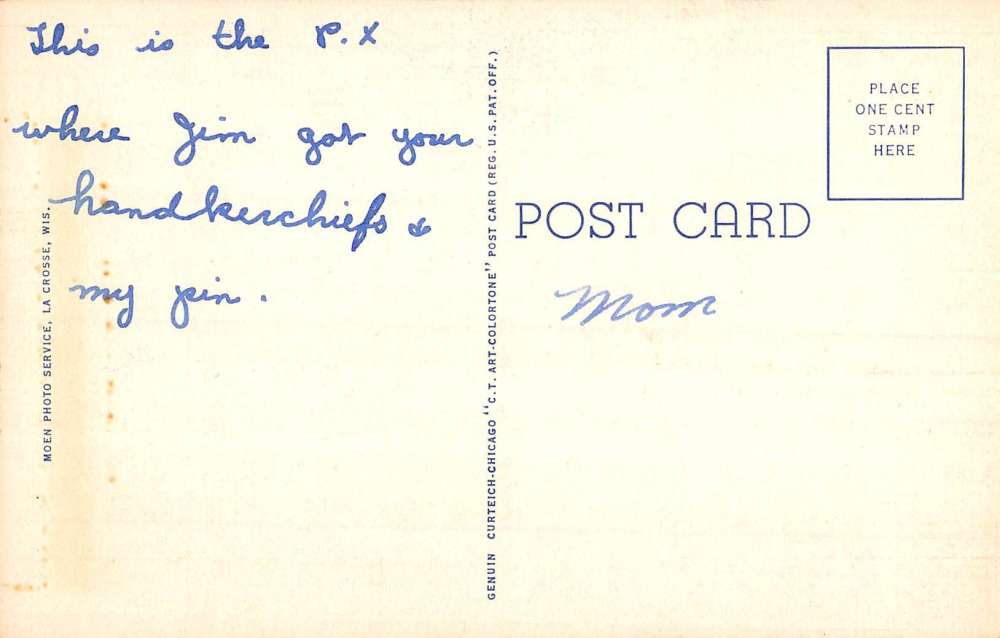 This is the P.X
where Jim got your
handkerchiefs &
my pin.
MOEN PHOTO SERVICE, LA CROSSE, WIS.
GENUIN CURTEICH-CHICAGO "C.T. ART-COLORTONE" POST CARD (REG. U.S. PAT. OFF.)
POST CARD
PLACE
ONE CENT
STAMP
HERE
Mom